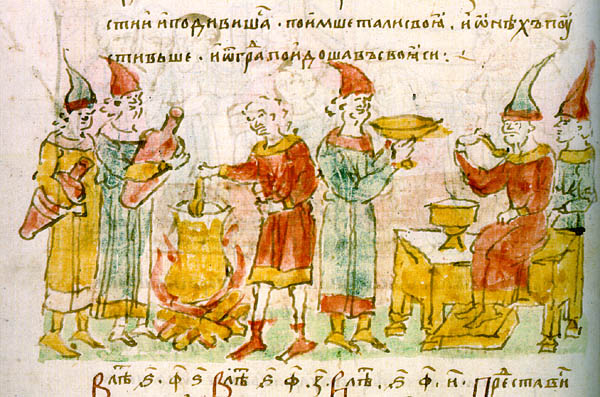 стии и подивишѧ · поимше тали своѧ , и ѡнѣхъ поу
стивьше · и ѿ граⷣ поидоша въ своѧ си :
В лѣⷮ ѕ҃ · ф҃ ѕ҃ В лѣⷮ ѕ҃ ф҃ · з҃ · В лѣⷮ · ѕ҃ ф҃ · и҃ · Престави